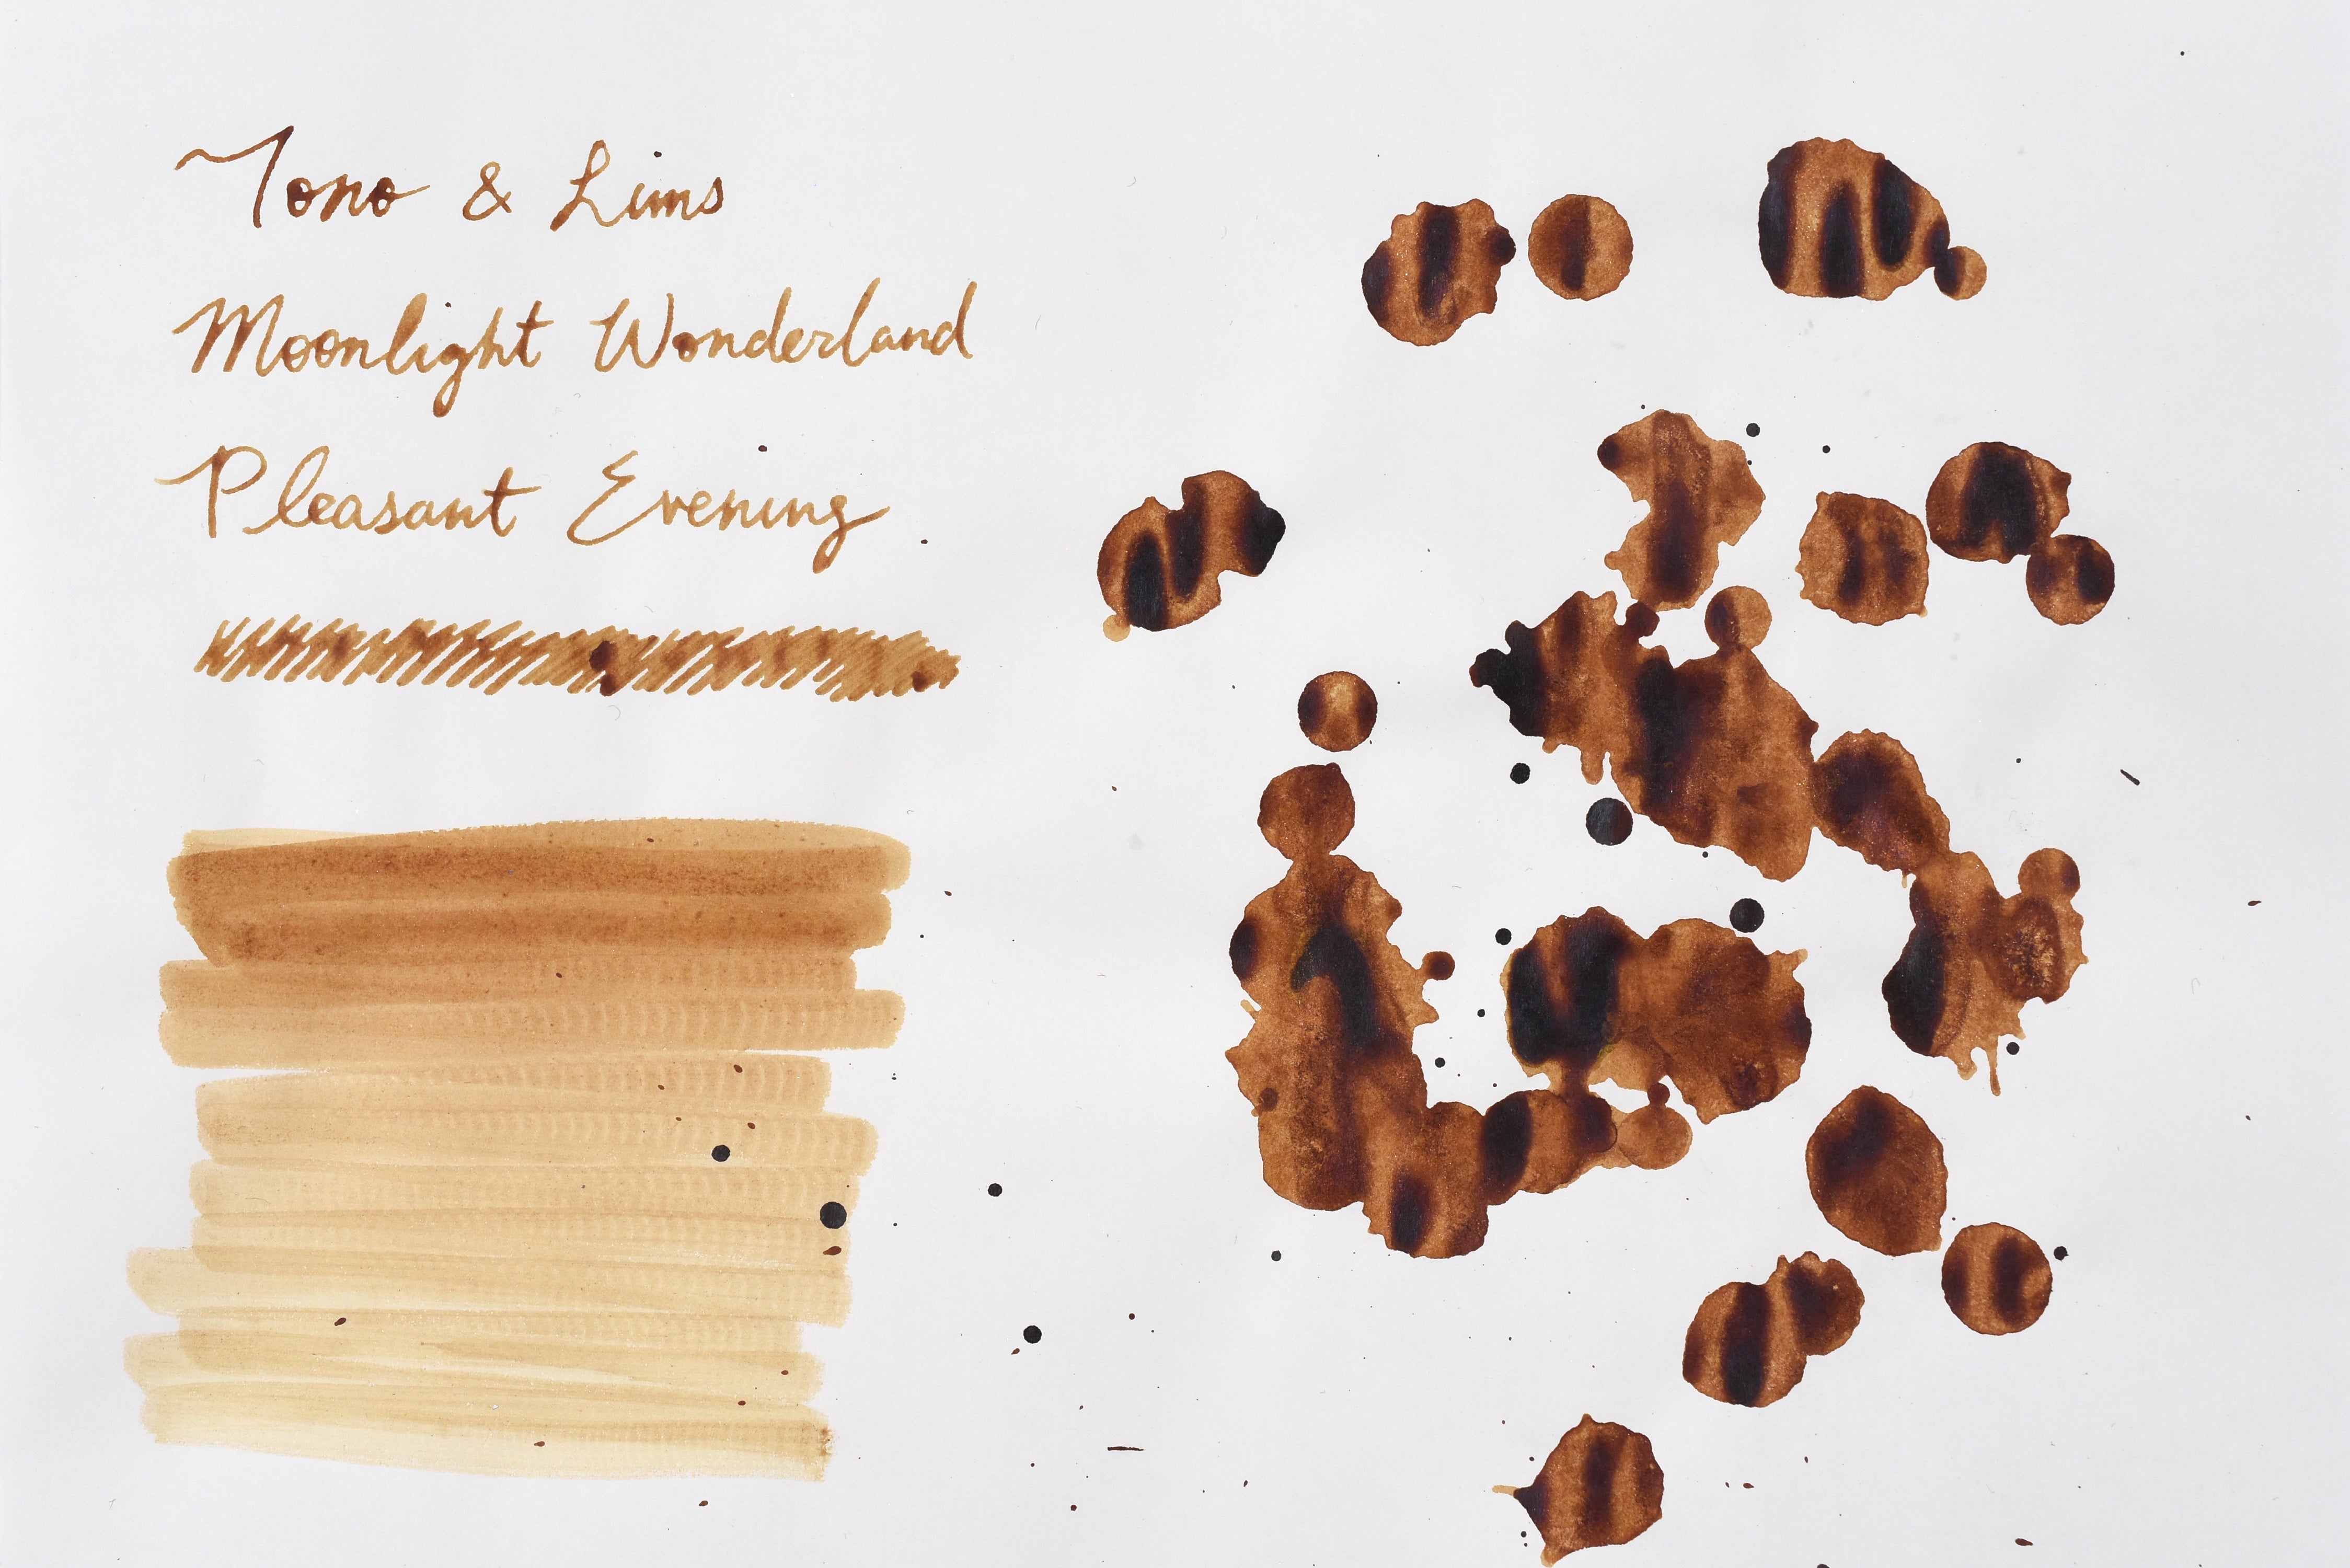 Tono & Lims
Moonlight Wonderland
Pleasant Evening